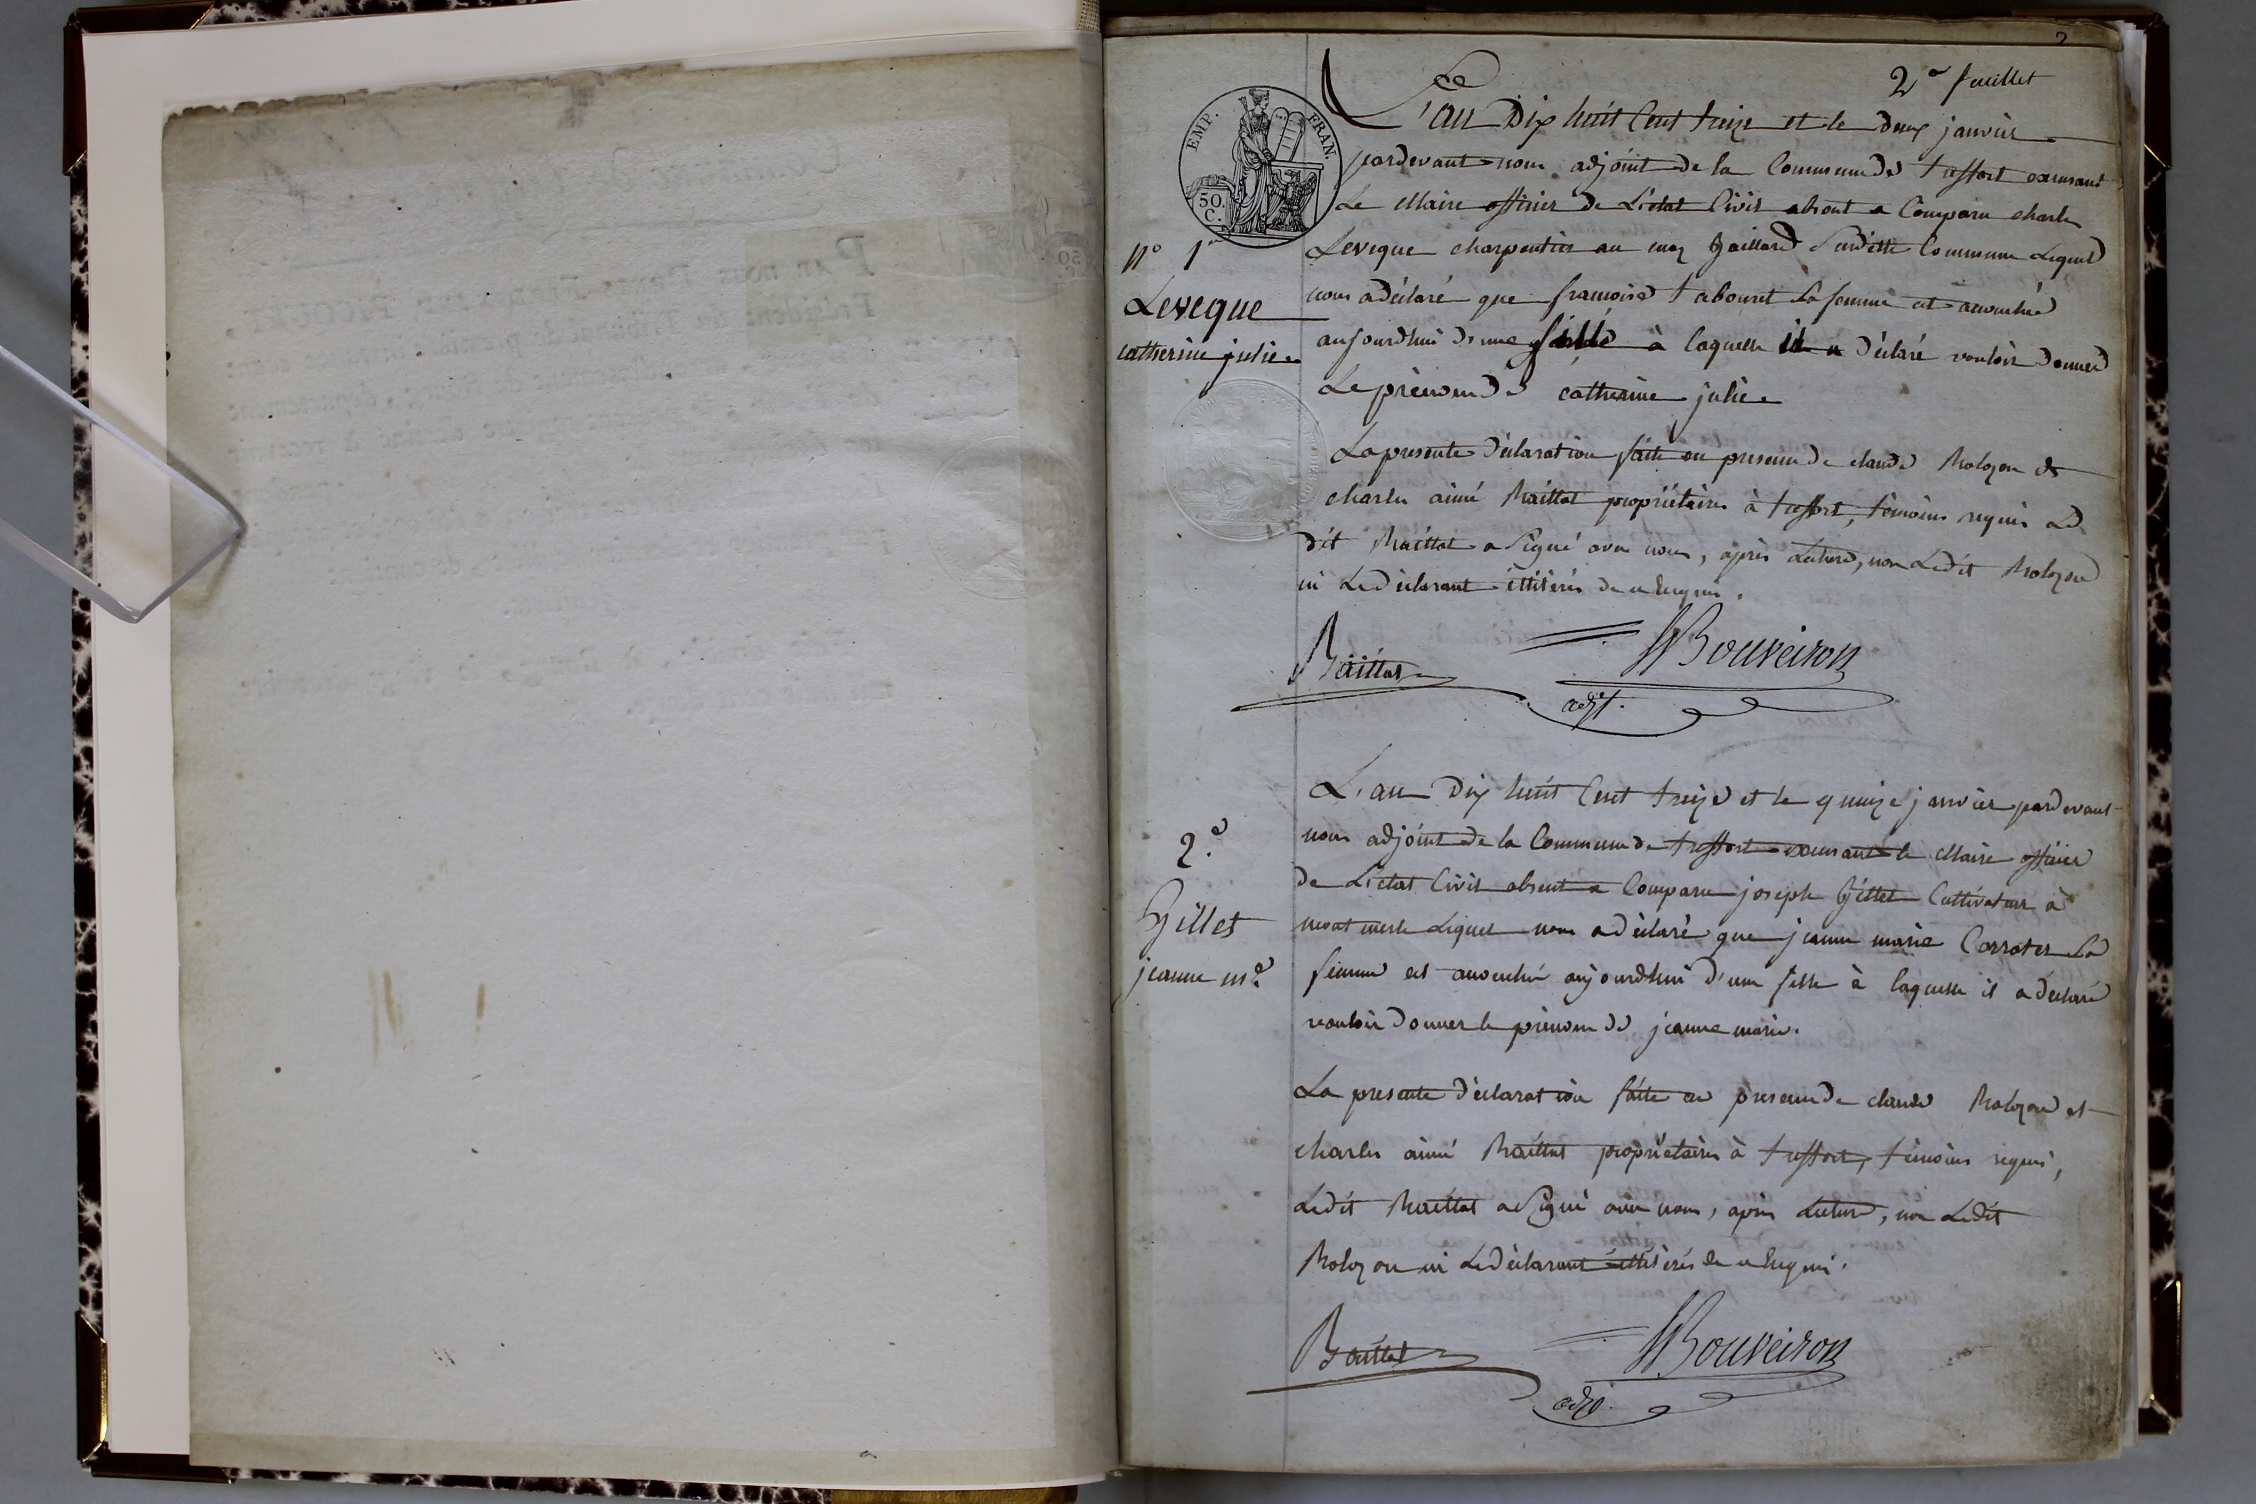 2
2e feuillet
EMP. FRAN.
50.
C.
L'an Dix huit Cent treize et le deux janvier
pardevant nous adjoint de la Commune de treffort
Le Maire officier de L'etat Civil absent a Comparu charle
n° 1er
Leveque charpentier au maz Gaillard Susditte Commune Lequel
Leveque
nous a déclaré que francoise tabouret Sa femme est accouchée
catherine julie
aujourdhui d'une fille à laquelle il a déclaré vouloir donner
Le prénom de catherine julie
La presente déclaration faite en presence de claude et
charles aimé Maillat propriétaires à treffort, témoins requis Le
dit Maillat a Signé avec nous, après Lecture, non Ledit
ni Le déclarant illitérés de ce Enquis.
Maillat
Bouveiron
adjt.
L'an Dix huit Cent treize et le quinze janvier pardevant
nous adjoint de la Commune de treffort le Maire officier
2e
de L'etat Civil absent a Comparu joseph Gillet Cultivateur à
Gillet
Lequel nous a déclaré que jeanne marie Sa
jeanne me
femme est accouchée aujourdhui d'une fille à laquelle il a déclaré
vouloir donner le prénom de jeanne marie.
La presente déclaration faite en presence de claude et
charles aimé Maillat propriétaires à treffort, témoins requis,
Ledit Maillat a Signé avec nous, après Lecture, non Ledit
ni Le déclarant illitérés de ce Enquis.
Maillat
Bouveiron
adjt.